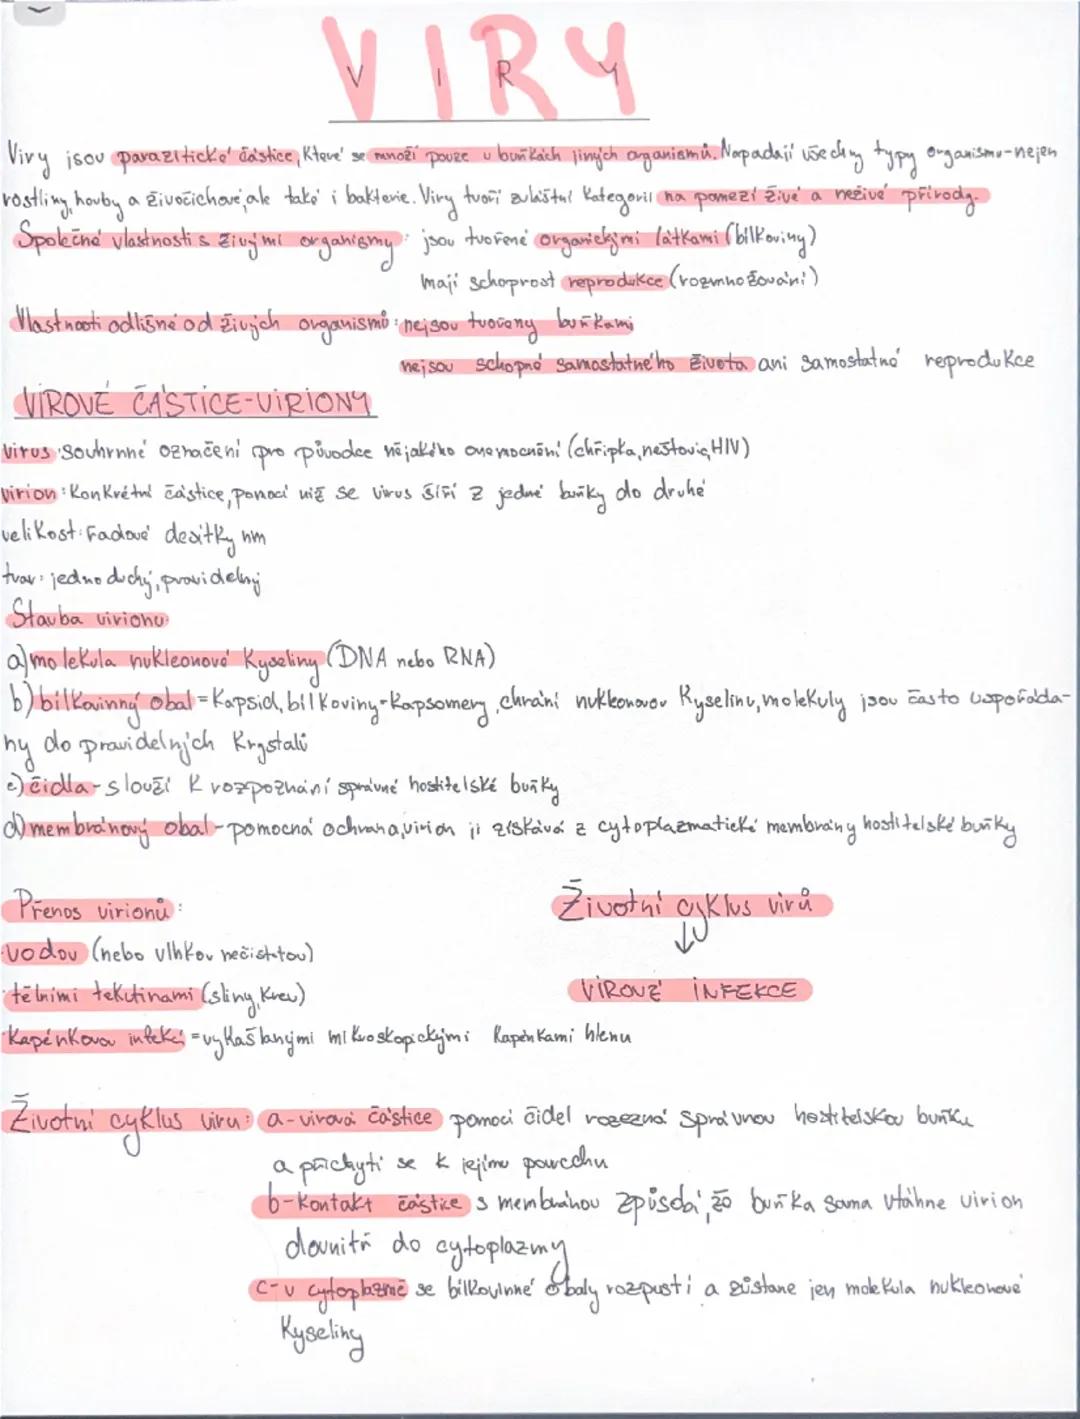 VIRY
Viry jsou parazitické částice, které se množí pouze v buňkách jiných organismů. Napadají všechny typy organismu-nejen
rostliny, houby a živočichové, ale také i bakterie. Viry tvoří zvláštní kategorii na pomezí živé a neživé přírody.
Společné vlastnosti s živými organismy: jsou tvořené organickými látkami (bilkoviny)
mají schoprost reprodukce (rozmnožování)
Vlastnosti odlišné od živých organismů: nejsou tvořeny buňkami
nejsou schopné samostatného života ani samostatné reprodukce
VIROVÉ ČÁSTICE-VIRIONY
virus: Souhrnné označení pro původce nějakého onemocnění (chřipka, neštovice, HIV)
virion: Konkrétní částice, pomocí níž se virus šíří z jedné buňky do druhé
velikost: řádově desítky nm
tvar: jednoduchý, pravidelný
Stavba virionu:
a) molekula nukleonové kyseliny (DNA nebo RNA)
b) bílkovinný obal = Kapsid, bílkoviny-Kapsomery, chrání nukleonovou kyselinu, molekuly jsou často uspořáda-
ny do pravidelných krystalů
c) čidla - slouží k rozpoznání správné hostitelské buňky
d) membránový obal - pomocná ochrana, virion ji získává z cytoplazmatické membrány hostitelské buňky
Přenos virionů:
vodou (nebo vlhkou nečistotou)
tělními tekutinami (sliny, krev)
Kapénkovou infekcí = vykašlanými mikroskopickými kapénkami hlenu
Životní cyklus virů
↓
VIROVÉ INFEKCE
Životní cyklus viru: a-virová částice pomocí čidel rozezná správnou hostitelskou buňku
a přichytí se k jejímu povrchu
b-kontakt částice s membránou způsobí, že buňka sama vtáhne virion
dovnitř do cytoplazmy
c-v cytoplazmě se bílkovinné obaly rozpustí a zůstane jen molekula nukleonové
kyseliny